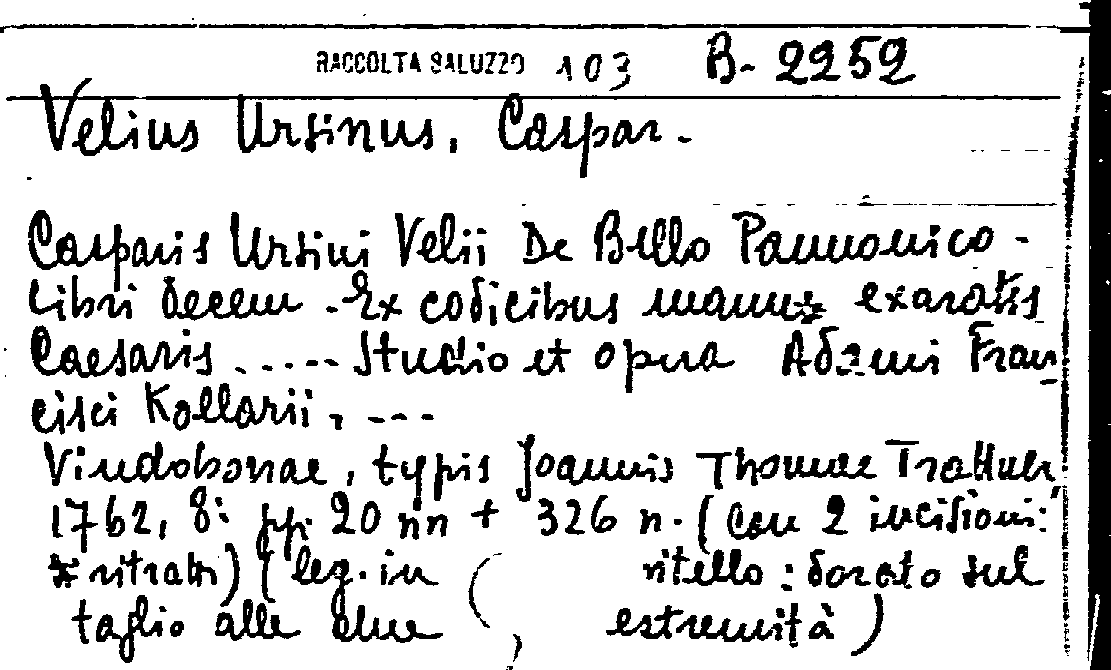 RACCOLTA SALUZZO 103 B- 2252
Velius Ursinus, Caspar.
Casparis Ursini Velii De Bello Pannonico -
Libri decem - Ex codicibus manu exaratis
Caesaris ..... Studio et opera Adami Fran
cisci Kollarii, ---
Vindobonae, typis Joannis Thomae Trattner,
1762, 8: pp. 20 nn + 326 n. (con 2 incisioni:
ritratti) (leg. in vitello: dorato sul
taglio alle due estremità)